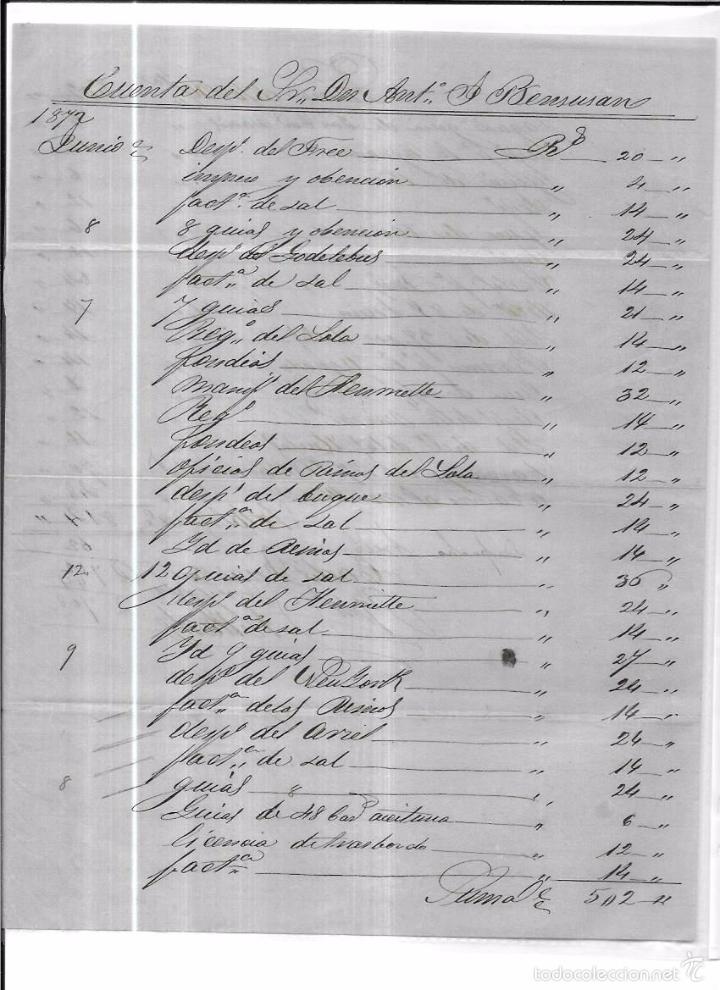 Cuenta del Sr. Dn Anto. A Bensusan
1872
Junio Despo. del Free Rs 20 "
y obención " 4 "
facta. de sal " 14 "
8 8 guias y obención " 24 "
despo. del Godelebus " 24 "
facta. de sal " 14 "
7 7 guias " 21 "
Rego. del Lola " 14 "
fondeos " 12 "
manifo. del Henriette " 32 "
Rego " 14 "
fondeos " 12 "
oficias de Reinos del Lola " 12 "
despo. del buque " 24 "
facta. de sal " 14 "
Yd de Reinos " 14 "
12 12 de sal " 36 "
despo. del Henriette " 24 "
facta. de sal " 14 "
9 Yd 9 guias " 27 "
despo. del New York " 24 "
facta. de las Reinos " 14 "
despo. del " 24 "
facta. de sal " 14 "
8 guias " 8 " 24 "
Guias de 48 aceituna " 6 "
licencia de trasbordo " 12 "
facta. " 14 "
Suma 502 "
todocoleccion.net